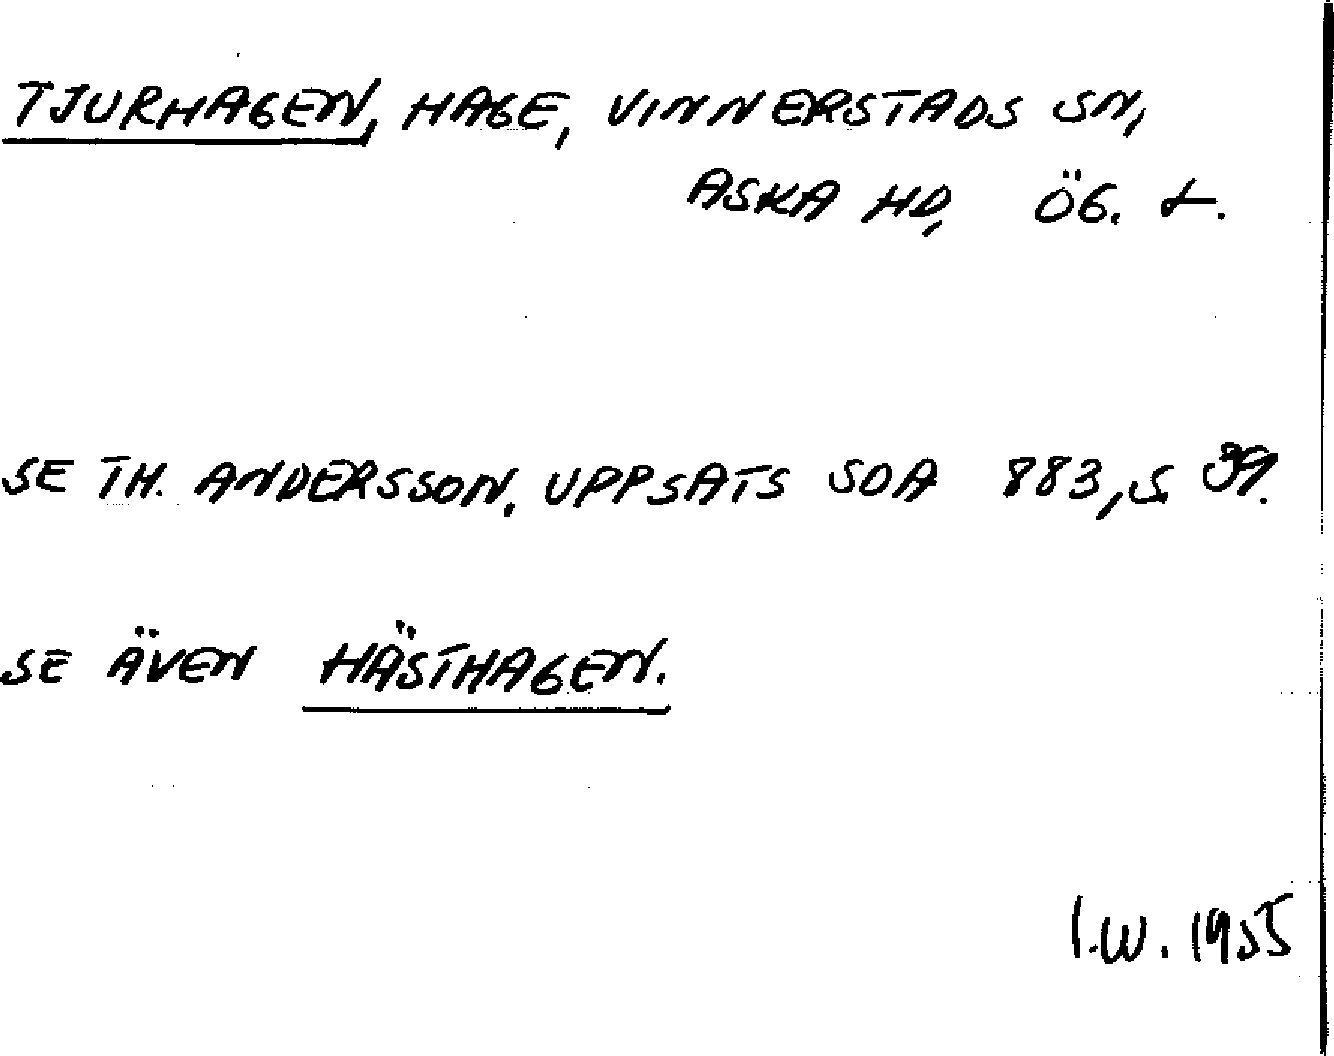 TJURHAGEN, HAGE, VINNERSTADS SN,
ASKA HD, ÖG. L.
SE TH. ANDERSSON, UPPSATS SOA 883, S 39.
SE ÄVEN HÄSTHAGEN.
I.W. 1955